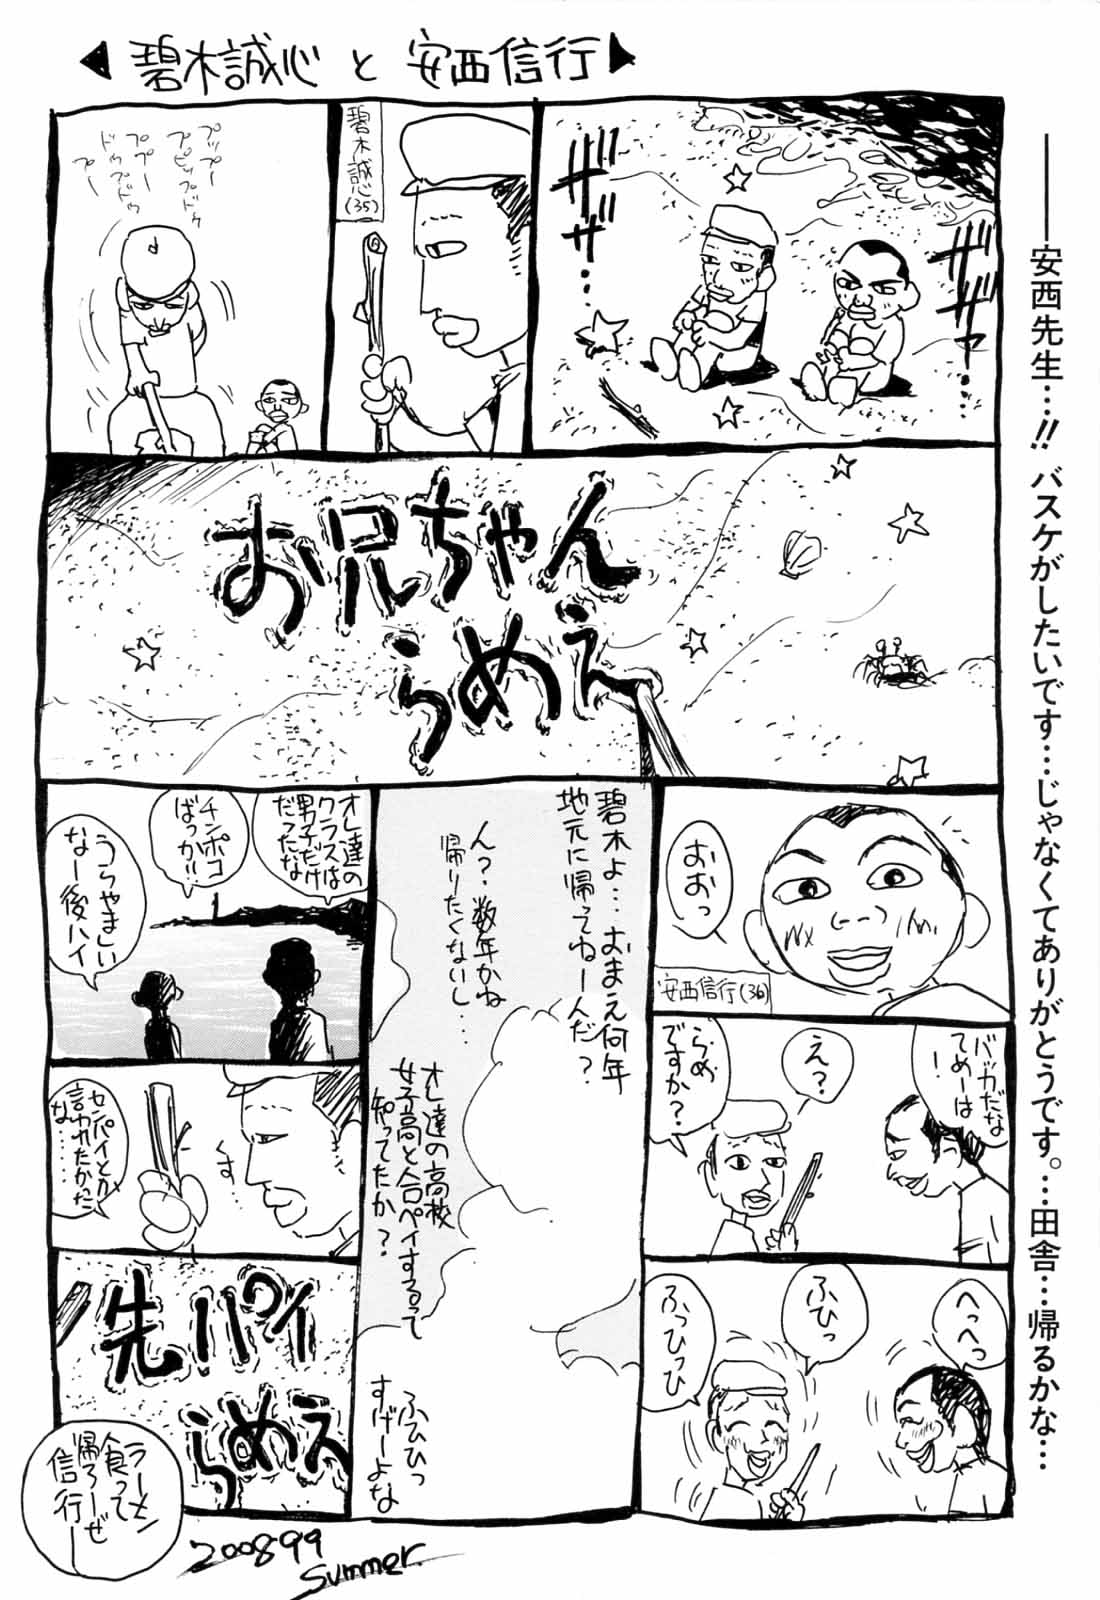 碧木誠心と安西信行
安西先生…!! バスケがしたいです…じゃなくてありがとうです。…田舎…帰るかな…
ザザザ…
ザザァ…
碧木誠心(35)
プップー
プピップドゥ
ププー
ドゥプドゥ
プー
お兄ちゃん
らめえ
おおっ
安西信行(36)
バッカだな
てめーは!
え?
らめ
ですか?
へっへっ
ふひっ
ふっひっひ
碧木よ…おまえ何年
地元に帰ってねーんだ?
ん?数年かね
帰りたくないし…
オレ達の高校
女子高と合ペイするって
知ってたか?
ふひひっ
すげーよな
オレ達の
クラスは
男子だけ
だったな
チンポコ
ばっか!!
うらやましい
なー後ハイ
す
センパイとか
言われたかった
な……
先パイ
らめえ
ラーメン
食って
帰ろーぜ
信行ー
200899
Summer.